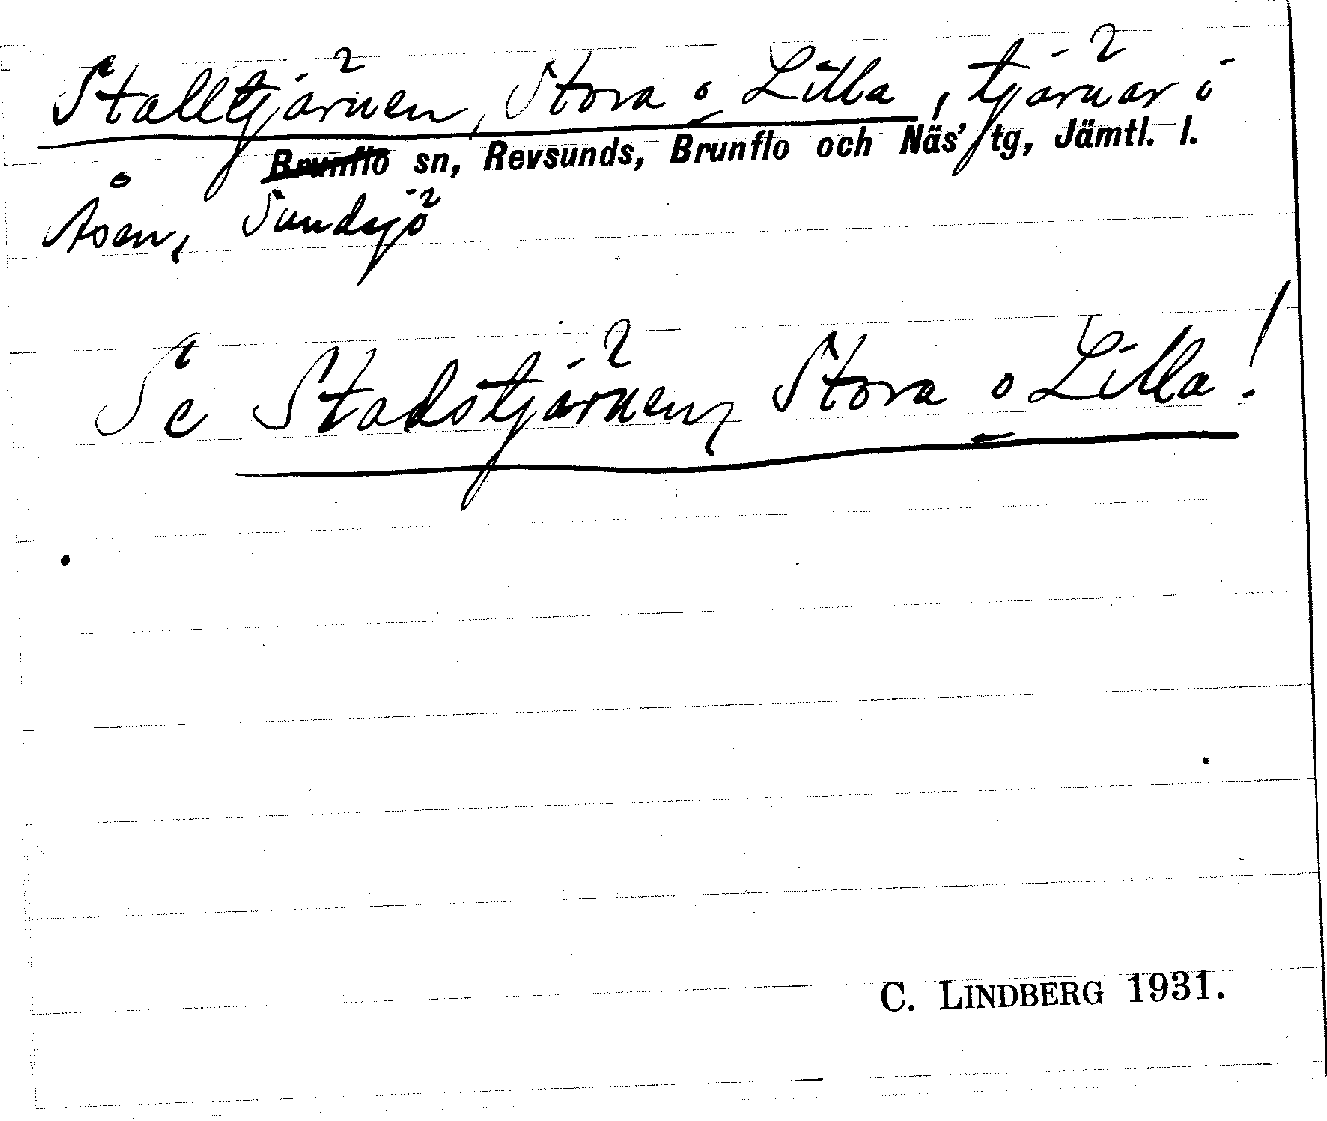 Stalltjärnen, Stora o Lilla, tjärnar i
Brunflo sn, Revsunds, Brunflo och Näs' tg, Jämtl. l.
Åsen, Sundsjö
Se Stadstjärnen, Stora o Lilla!
C. LINDBERG 1931.